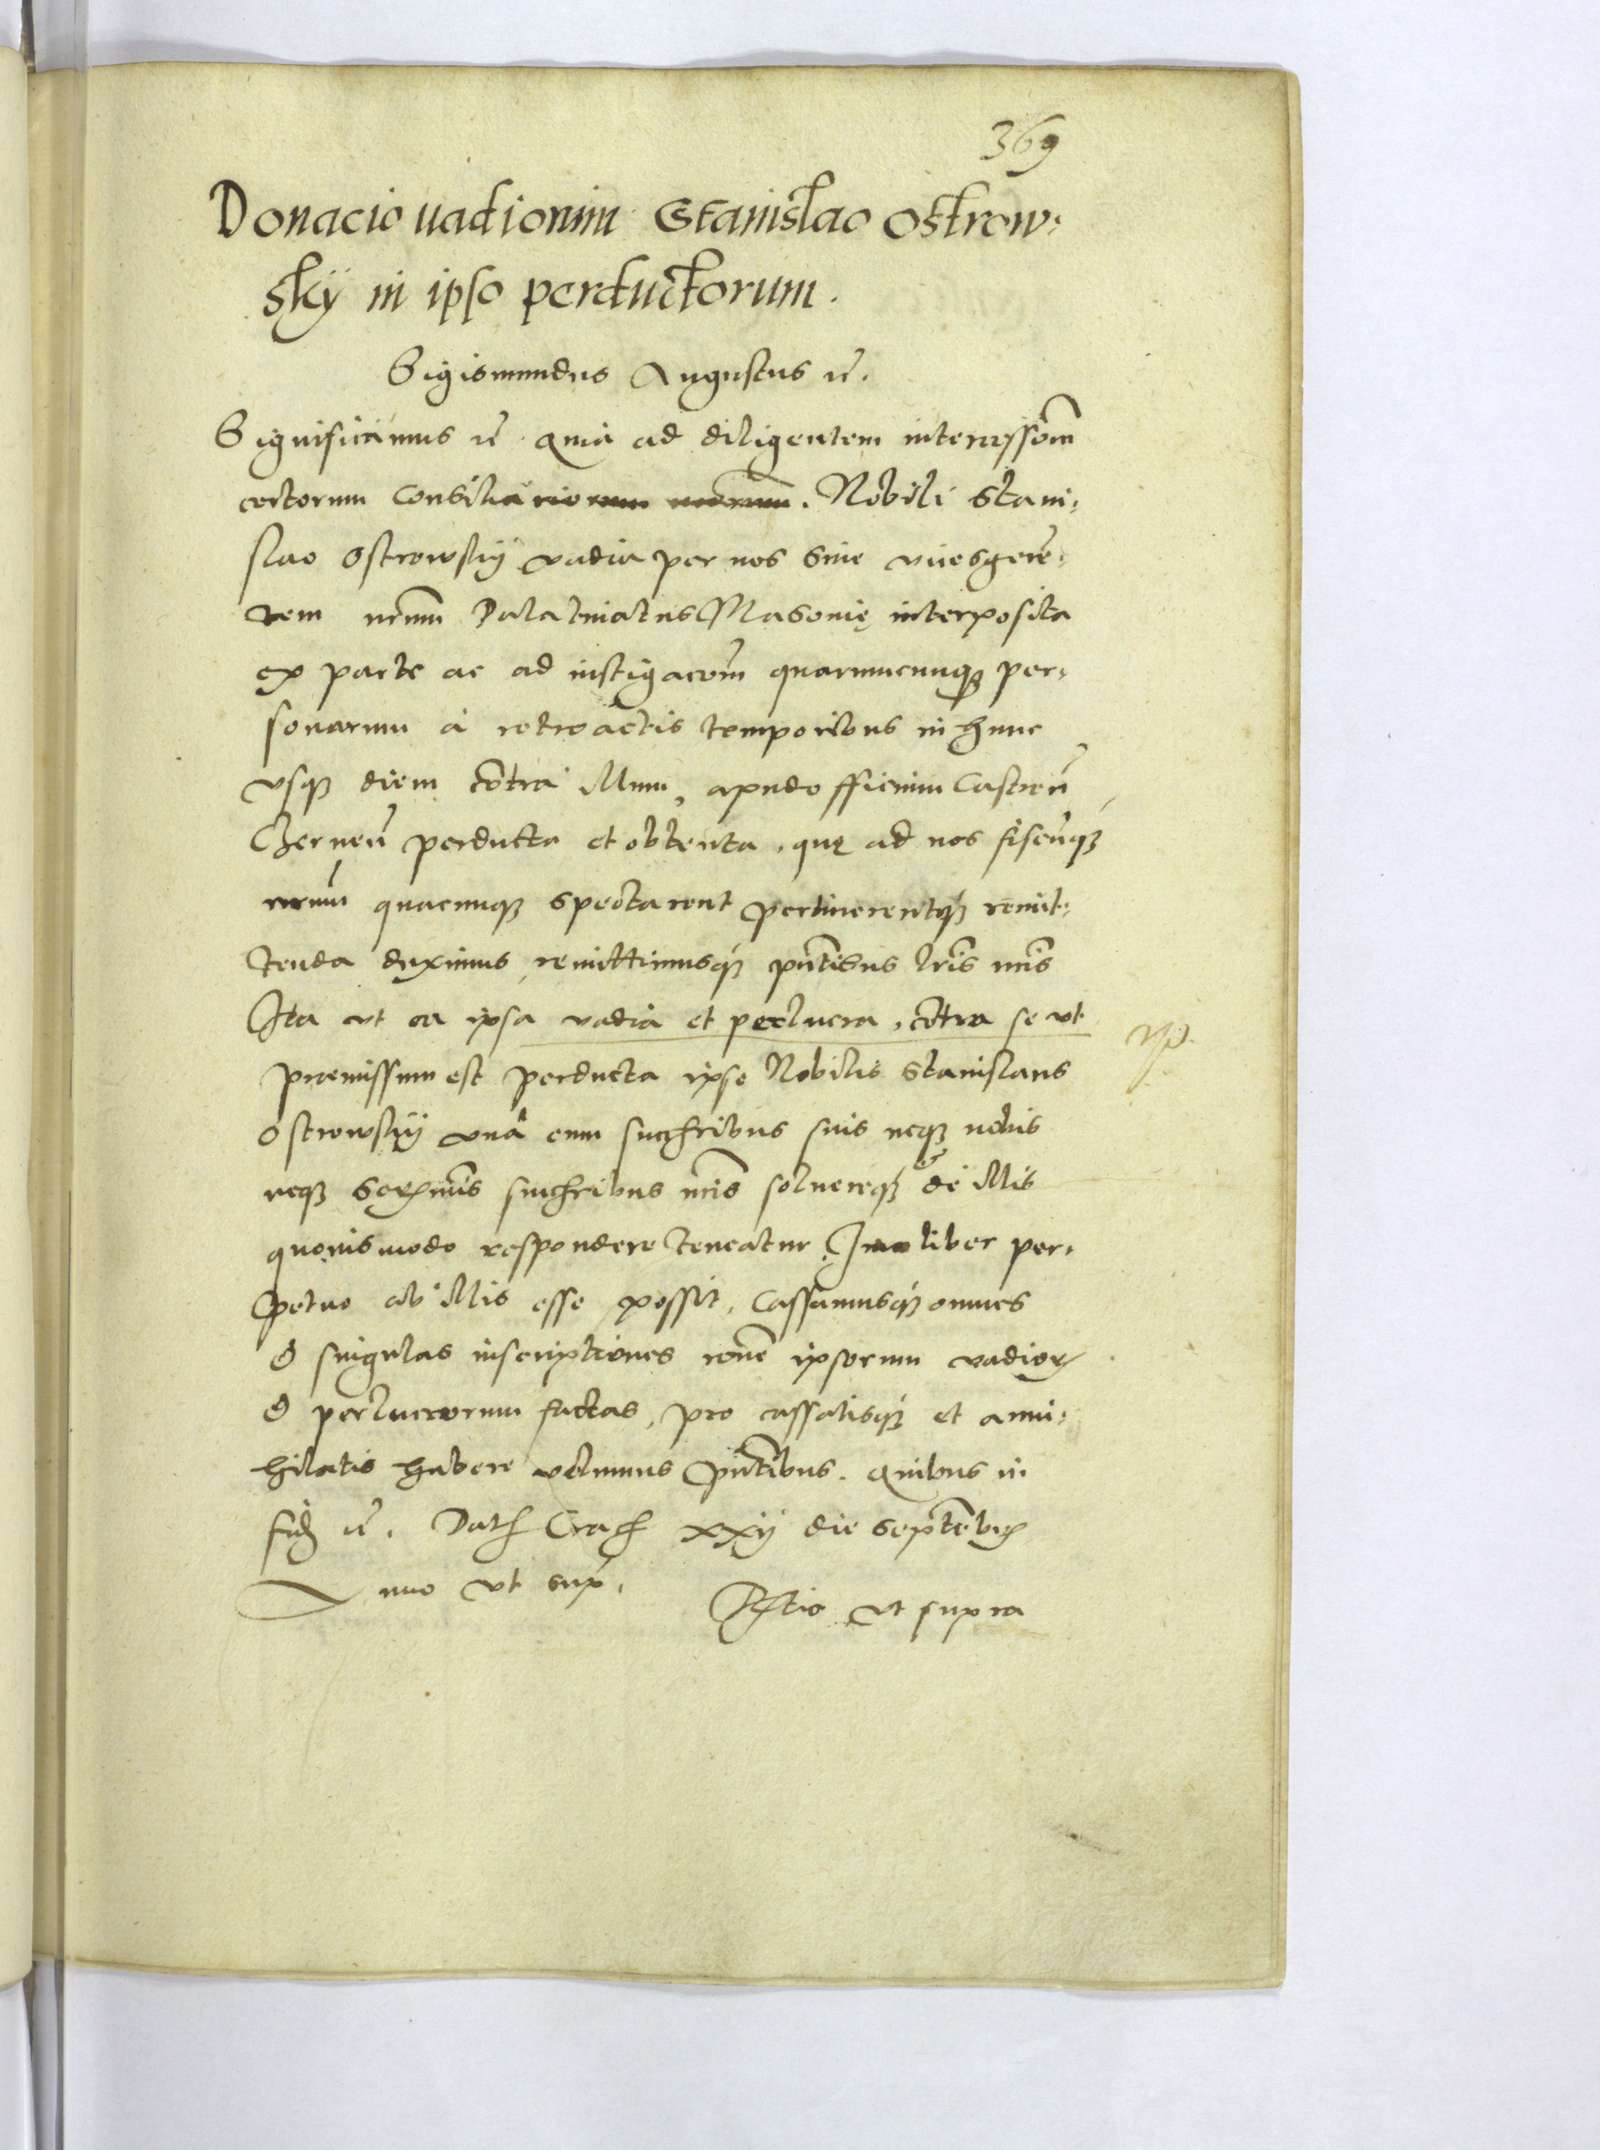 369
Donacio uadiorum Stanislao Ostrow:
skÿ in ipso perductorum.
Sigismundus Augustus etc̃.
Significamus etc̃. quia ad diligentem intercessiom̃
certorum Consiliariorum nr̃orum. Nobili Stani:
slao Ostrowskÿ vadia per nos siue vicesgeren̄:
tem nr̃um Palatinatus Masouię interposita
ex parte ac ad instigacom̃ quarumcunq₃ per:
sonarum à retroactis temporibus in hunc
vsq₃ diem cõtra illum, apud officium Castren̄
Chernen̄ perducta et obtenta, quę ad nos fiscũq₃
nr̃um quacunq₃ spectarent pertinerentq₃ remit:
tenda duximus, remittimusq₃ pñtibus lr̃is nr̃is
Ita vt ea ipsa vadia et perlucra, cõtra se vt
premissum est perducta ipse Nobilis Stanislaus
Ostrowskÿ vnâ cum succribus suis neq₃ nobis
neq₃ Sermis succribus nr̃is soluereq₃ & de illis
quouis modo respondere teneatur. Imo liber per:
petuo ab illis esse possit, Cassamusq₃ omnes
& singulas inscriptiones rõne ipsorum vadior.
& perlucrorum factas, pro cassatisq₃ et anni:
hilatis habere volumus pñtibus. Quibus in
fid. etc̃. Dat. Crac. xxij die Septẽbr.
Anno vt sup.
Rl̃tio vt supra